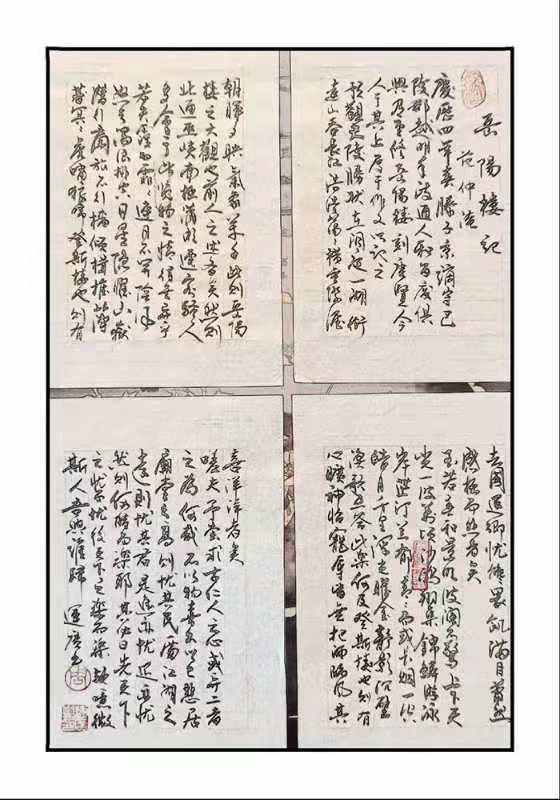 岳陽樓記
范仲淹
慶歷四年春滕子京謫守巴
陵郡越明年政通人和百廢俱
興乃重修岳陽樓刻唐賢今
人于其上屬予作文以記之
予觀夫巴陵勝狀在洞庭一湖銜
遠山吞長江浩浩湯湯橫無際涯
朝暉夕映氣象萬千此則岳陽
樓之大觀也前人之述備矣然則
北通巫峽南極瀟湘遷客騷人
多會于此覽物之情得無異乎
若夫霪雨霏霏連月不開陰風
怒號濁浪排空日星隱耀山嶽
潛形商旅不行檣傾楫摧薄
暮冥冥虎嘯猿啼登斯樓也則有
去國還鄉忧讒畏譏滿目蕭然
感極而悲者矣
至若春和景明波瀾不驚上下天
光一波萬頃沙鷗翔集錦鱗游泳
岸芷汀蘭郁郁青青而或長烟一空
皓月千里浮光耀金靜影沉璧
漁歌互答此樂何及登斯樓也則有
心曠神怡寵辱皆忘把酒臨風其
喜洋洋者矣
嗟夫予嘗求古仁人之心或異二者
之為何哉不以物喜不以己悲居
廟堂之高則忧其民處江湖之
遠則忧其君是進亦忧退亦忧
然則何時而樂耶其必曰先天下
之忧而忧後天下之樂而樂歟噫微
斯人吾與誰歸